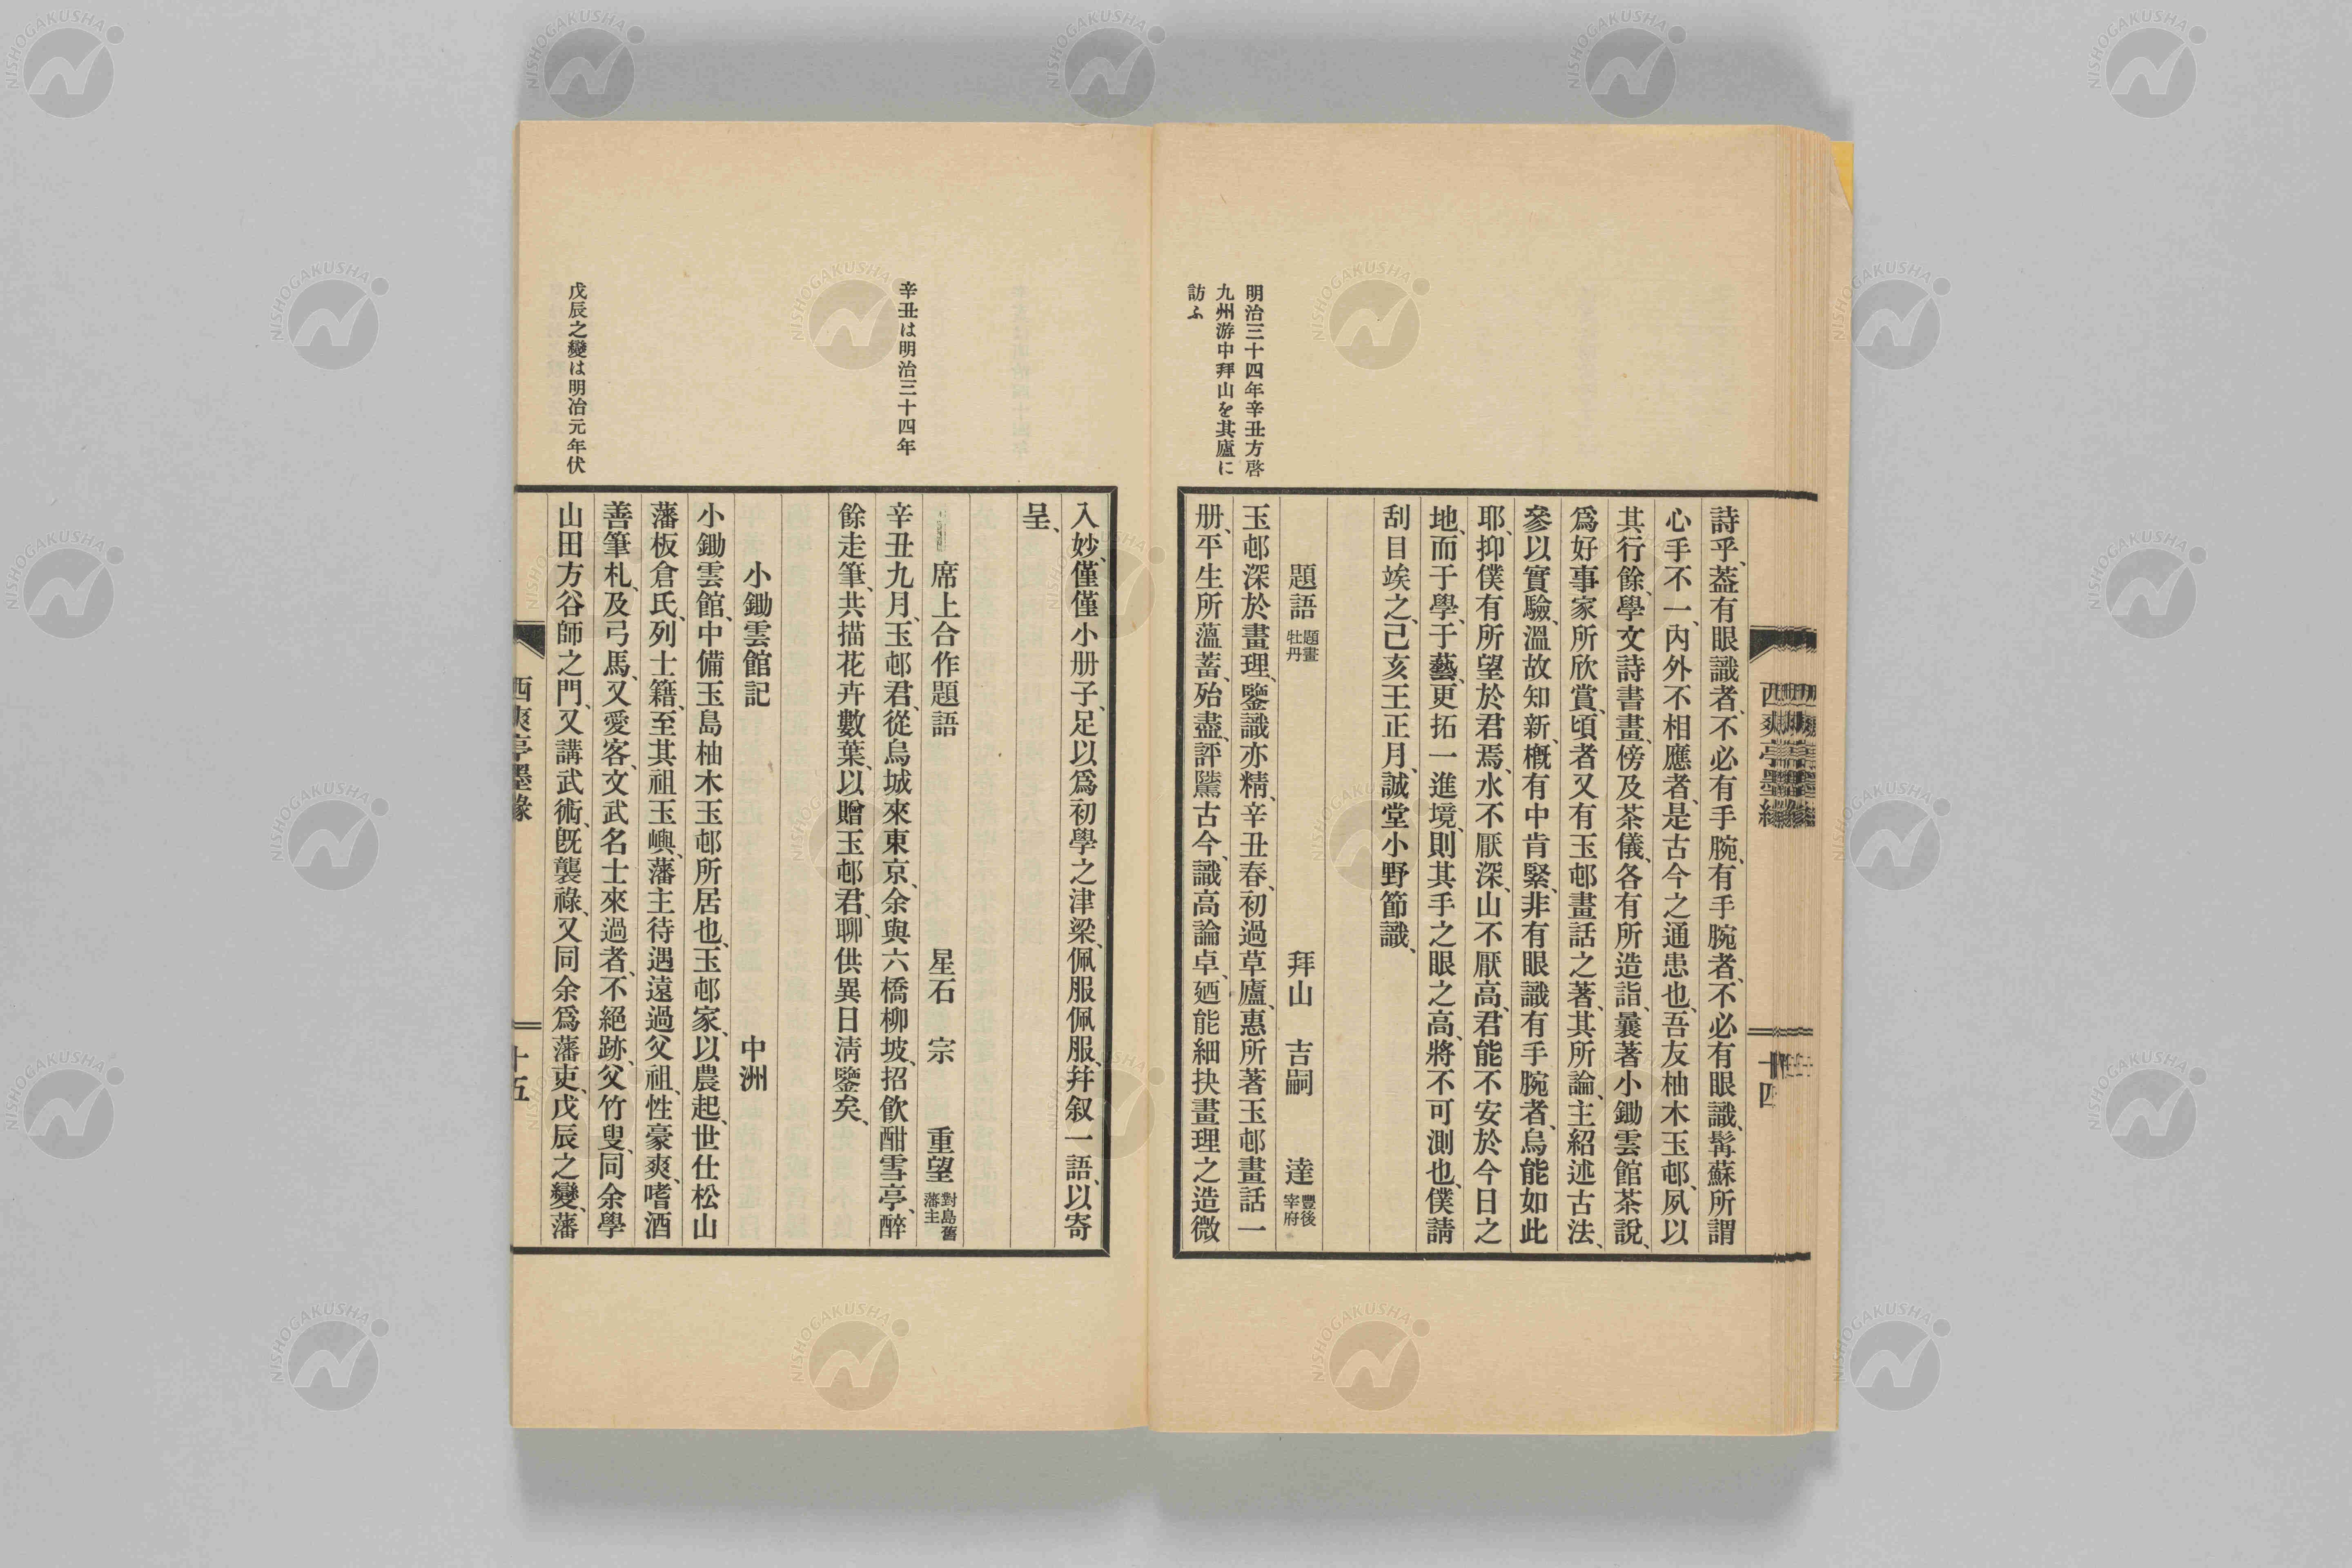 西爽亭墨緣
十四
詩乎、蓋有眼識者、不必有手腕、有手腕者、不必有眼識、髯蘇所謂
心手不一、內外不相應者、是古今之通患也、吾友柚木玉邨、夙以
其行餘、學文詩書畫、傍及茶儀、各有所造詣、曩著小鋤雲館茶說、
爲好事家所欣賞、頃者又有玉邨畫話之著、其所論、主紹述古法、
參以實驗、溫故知新、槪有中肯緊、非有眼識有手腕者、烏能如此
耶、抑僕有所望於君焉、水不厭深、山不厭高、君能不安於今日之
地、而于學、于藝、更拓一進境、則其手之眼之高、將不可測也、僕請
刮目竢之、己亥王正月、誠堂小野節識、
題語 題畫牡丹 拜山 吉嗣 達 豐後宰府
明治三十四年辛丑方啓
九州游中拜山を其廬に
訪ふ
玉邨深於畫理、鑒識亦精、辛丑春、初過草廬、惠所著玉邨畫話一
册、平生所薀蓄、殆盡、評隲古今、識高論卓、廼能細抉畫理之造微
入妙、僅僅小册子、足以爲初學之津梁、佩服佩服、幷叙一語、以寄
呈、
席上合作題語 星石 宗 重望 對島舊藩主
辛丑は明治三十四年
辛丑九月、玉邨君、從烏城來東京、余與六橋柳坡、招飮酣雪亭、醉
餘走筆、共描花卉數葉、以贈玉邨君、聊供異日淸鑒矣、
小鋤雲館記 中洲
小鋤雲館、中備玉島柚木玉邨所居也、玉邨家、以農起、世仕松山
藩板倉氏、列士籍、至其祖玉嶼、藩主待遇遠過父祖、性豪爽、嗜酒
善筆札、及弓馬、又愛客、文武名士來過者、不絕跡、父竹叟、同余學
戊辰之變は明治元年伏
山田方谷師之門、又講武術、旣襲祿、又同余爲藩吏、戊辰之變、藩
西爽亭墨緣
十五